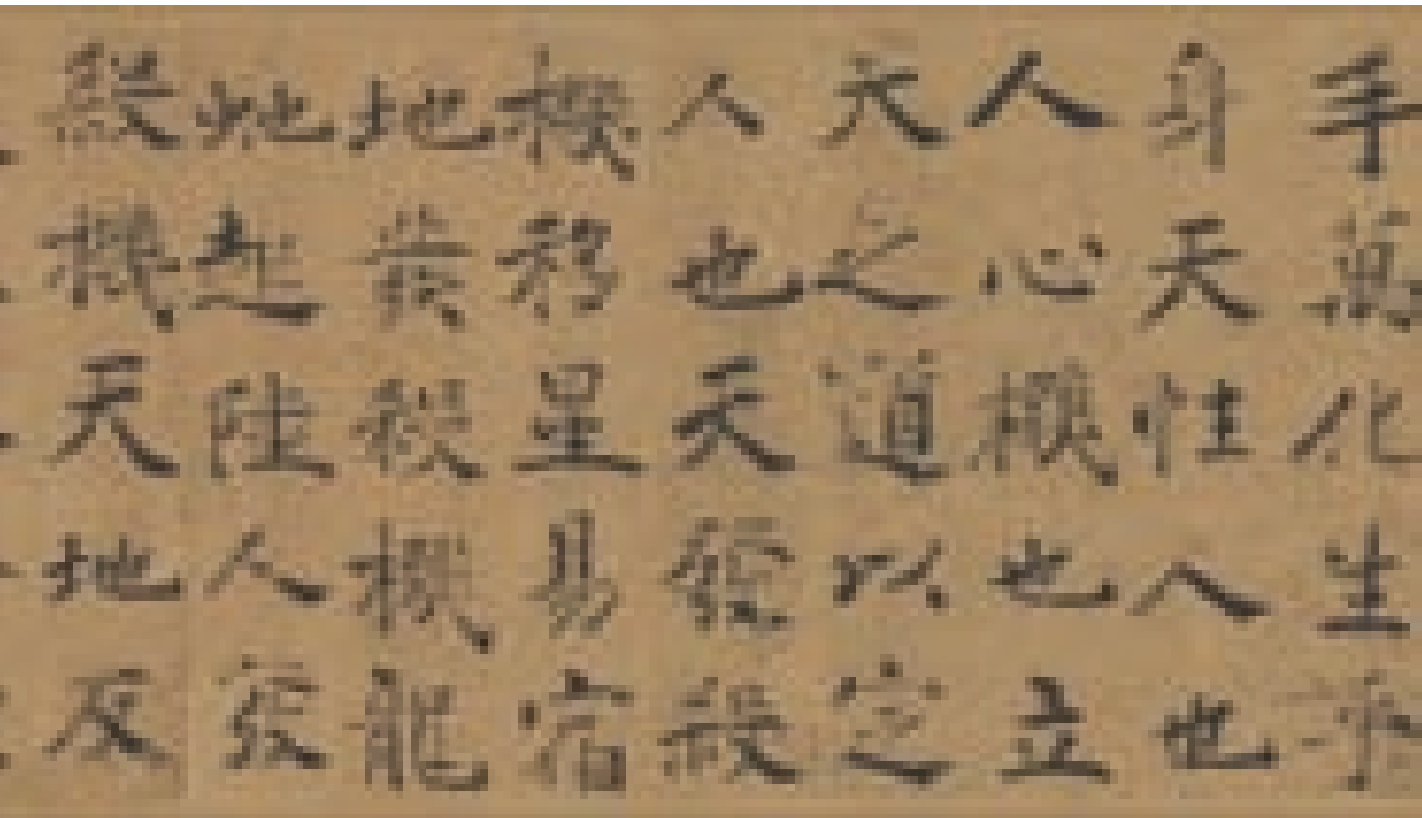 手萬化生乎
身天性人也
人心機也立
天之道以定
人也天發殺
機移星易宿
地發殺機龍
虵起陸人發
殺機天地反